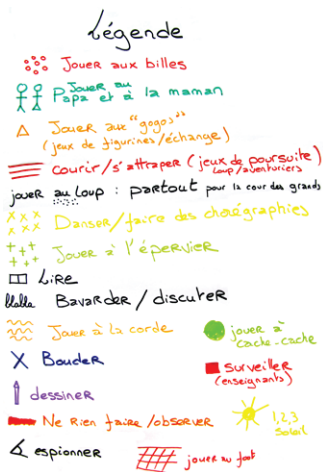 Légende
Jouer aux billes
Jouer au
Papa et à la maman
Jouer aux "gogos"
(jeux de figurines/échange)
courir/s'attraper (jeux de poursuite)
loup/aventuriers
jouer au loup : partout pour la cour des grands
Danser/faire des chorégraphies
Jouer à l'épervier
Lire
blabla Bavarder / discuter
Jouer à la corde
jouer à
cache-cache
Bouder
surveiller
(enseignants)
dessiner
Ne Rien faire /observer
1,2,3
Soleil
espionner
jouer au foot